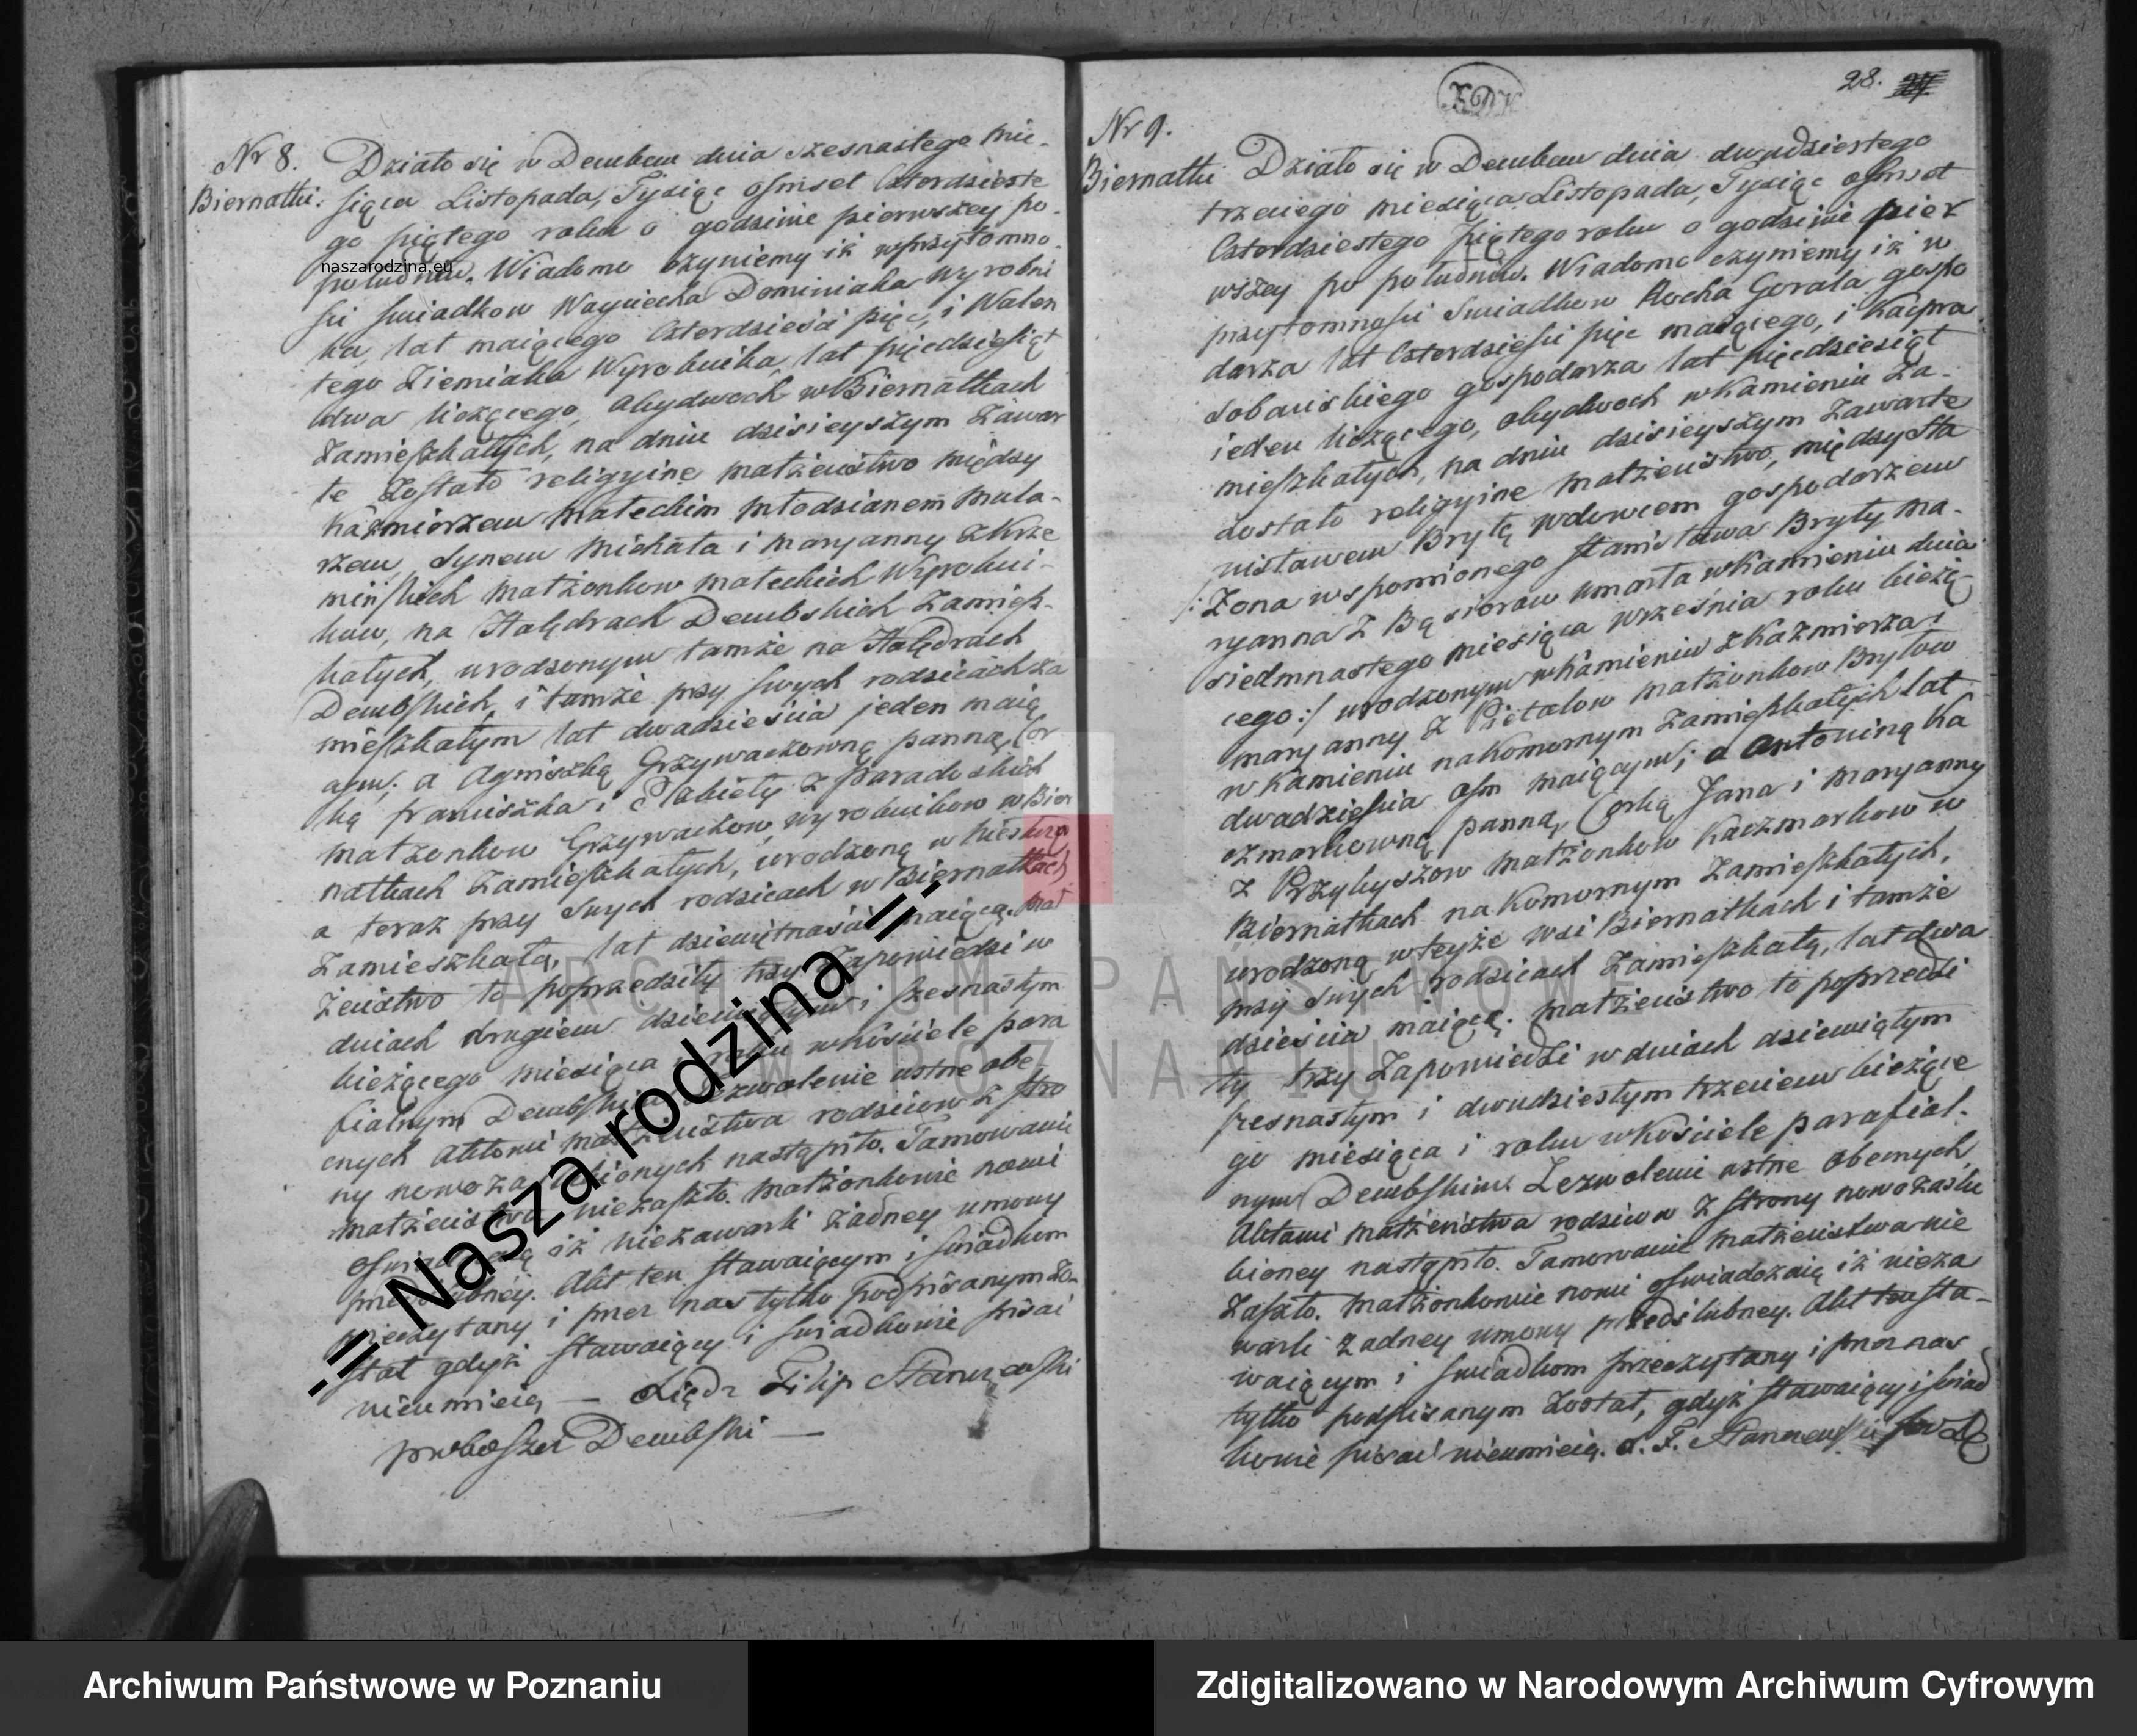 Nr 8.
Biernathi.
Działo się w Dembem dnia szesnastego mie-
siąca Listopada, Tysiąc ośmset Czterdzieste
go piątego roku o godzinie pierwszey po-
południu. Wiadomo czyniemy iż w przytomno-
ści świadkow Woyciecha Dominiaka Wyrobni
ka, lat maiącego Czterdzieści pięc, i Walen
tego Ziemiaka Wyrobnika lat pięcdziesiąt
dwa liczącego, obydwoch w Biernatkach
Zamieszkałych, na dniu dzisieyszym Zawar
te Zostało religijne małżeństwo między
Kaźmierzem Małeckim młodzianem mula-
rzem, Synem Michała i Maryanny z Krze
mińskich Małżonkow Małeckich Wyrobni-
kow, na Holędrach Dembskich Zamiesz-
kałych, urodzonym tamże na Holędrach
Dembskich, i tamże przy swych rodzicach za
mieszkałym lat dwadzieścia jeden maią
cym; a Agnieszką Grzywaczowną panną, Cor
ką Franciszka i Elżbiety z Paradoskich
Małżonkow Grzywaczow, wyrobnikow w Bier
natkach Zamieszkałych, urodzoną w
a teraz przy swych rodzicach w Biernatkach
Zamieszkałą, lat dziewiętnaście maiącą. Mał
żeństwo to poprzedziły trzy Zapowiedzi w
dniach drugiem dziewiątym i szesnastym
bieżącego miesiąca i roku w kościele para
fialnym Dembskim. Zezwolenie ustne obe
cnych Aktowi małżeństwa rodzicow z stro
ny nowozaślubionych nastąpiło. Tamowanie
małżeństwa niezaszło. Małżonkowie nowi
oświadczaią iż niezawarli żadney umowy
przedślubney. Akt ten stawaiącym i świadkom
przeczytany i przez nas tylko podpisanym zo-
stał gdyż stawaiący i świadkowie pisać
nieumieią — Xiądz Filip
proboszcz Dembski —
naszarodzina.eu
28.
Nr 9.
Biernathi
Działo się w Dembem dnia dwudziestego
trzeciego miesiąca Listopada, Tysiąc ośmset
Czterdziestego piątego roku o godzinie pier
wszey po południu. Wiadomo czyniemy iż w
przytomności świadkow Rocha Gorala gospo
darza lat Czterdzieści pięc maiącego, i Kacpra
Sobańskiego gospodarza lat pięcdziesiąt
ieden liczącego, obydwoch w Kamieniu Za-
mieszkałych, na dniu dzisieyszym Zawarte
zostało religijne małżeństwo, między Sta
nisławem Brytą wdowcem gospodarzem
/: Zona wspomionego Stanisława Bryty Ma-
ryanna z Bąsiorow umarła w Kamieniu dnia
siedmnastego miesiąca września roku bieżą-
cego :/ urodzonym w Kamieniu z Kaźmierza i
Maryanny z Pietalow małżonkow Brytow
w Kamieniu na Komornym Zamieszkałych lat
dwadzieścia ośm maiącym; a Antoniną Ka
czmarkowną panną, Corką Jana i Maryanny
z Przybyszow małżonkow Kaczmarkow w
Biernatkach na Komornym Zamieszkałych,
urodzoną w teyże wsi Biernatkach i tamże
przy swych rodzicach Zamieszkałą, lat dwa
dzieścia maiącą. Małżeństwo to poprzedzi
ły trzy Zapowiedzi w dniach dziewiątym
szesnastym i dwudziestym trzeciem bieżące
go miesiąca i roku w kościele parafial-
nym Dembskim. Zezwolenie ustne obecnych
Aktowi małżeństwa rodzicow z strony nowozaślu
bioney nastąpiło. Tamowanie małżeństwa nie
zaszło. Małżonkowie nowi oświadczaią iż nieza
warli żadney umowy przedślubney. Akt ten sta-
waiącym i świadkom przeczytany i przez nas
tylko podpisanym został, gdyż stawaiący i świad
kowie pisać nieumieią. X. F.
ARCHIWUM PAŃSTWOWE
W POZNANIU
.:= Nasza rodzina =:.
Archiwum Państwowe w Poznaniu
Zdigitalizowano w Narodowym Archiwum Cyfrowym